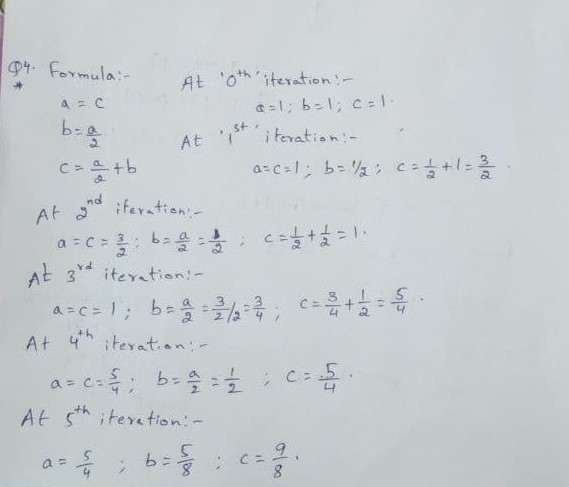 Q4. Formula:-
*
a = c
b = a/2
c = a/2 + b
At '0th' iteration:-
a=1; b=1; c=1.
At '1st' iteration:-
a=c=1; b=1/2; c=1/2+1=3/2.
At 2nd iteration:-
a=c=3/2; b=a/2=1/2; c=1/2+1/2=1.
At 3rd iteration:-
a=c=1; b=a/2=3/2/2=3/4; c=3/4+1/2=5/4.
At 4th iteration:-
a=c=5/4; b=a/2=1/2; c=5/4.
At 5th iteration:-
a=5/4; b=5/8; c=9/8.